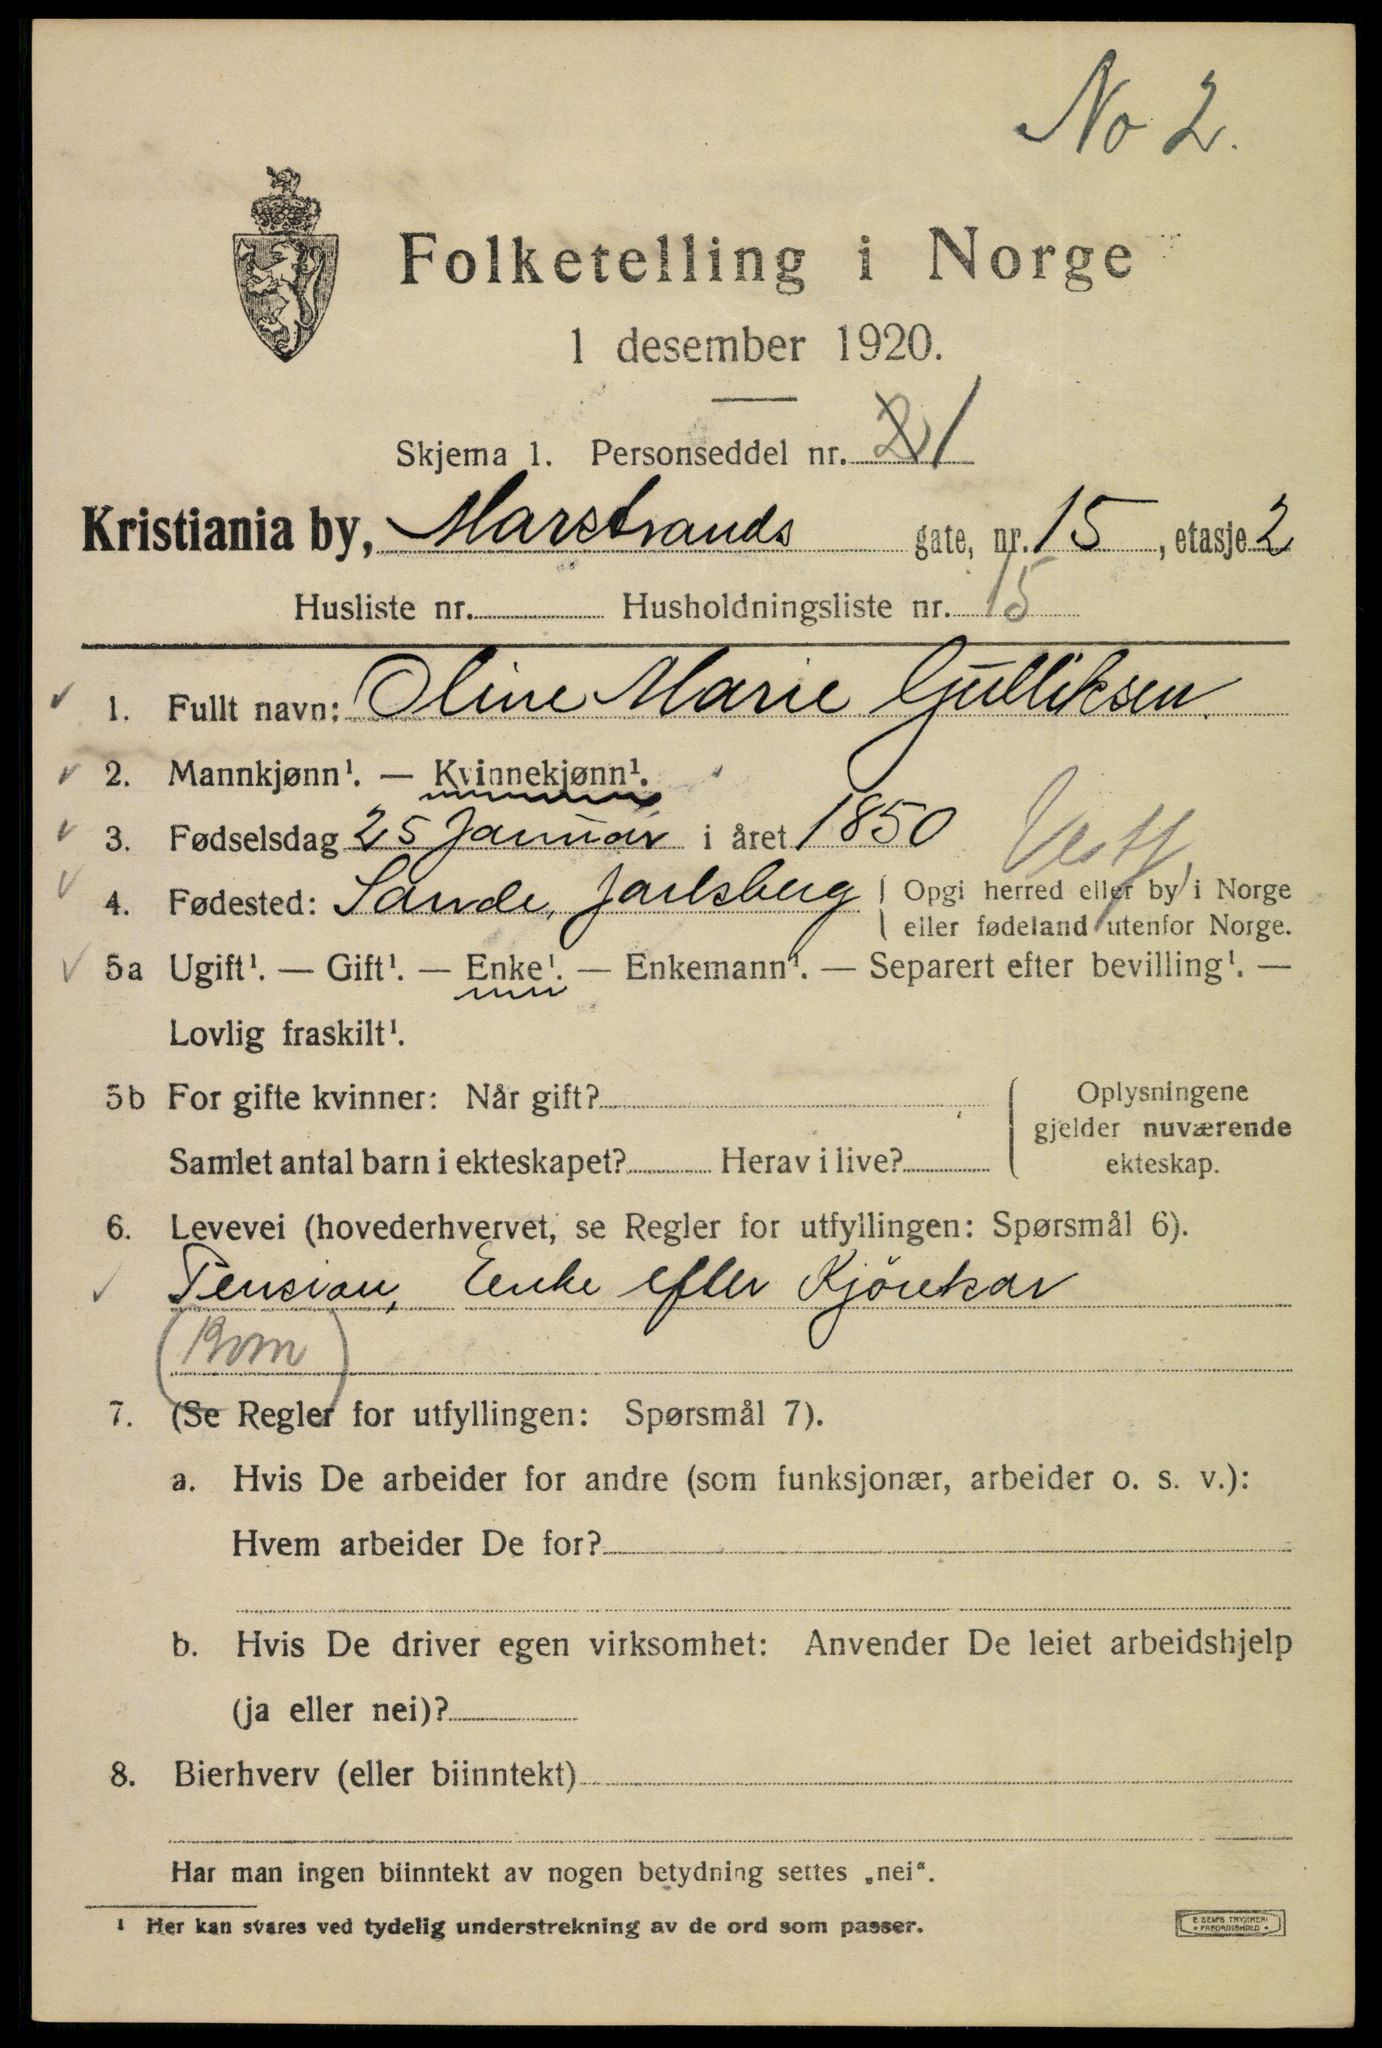 No 2.
Folketelling i Norge
1 desember 1920.
Skjema 1. Personseddel nr. 2 1
Kristiania by, Marstrands gate, nr. 15, etasje 2
Husliste nr. Husholdningsliste nr. 15
1. Fullt navn: Oline Marie Gulliksen.
2. Mannkjønn¹. — Kvinnekjønn¹.
3. Fødselsdag 25 Januar i året 1850
Vestf.
4. Fødested: Sande, Jarlsberg Opgi herred eller by i Norge
eller fødeland utenfor Norge.
5a Ugift¹. — Gift¹. — Enke¹. — Enkemann¹. — Separert efter bevilling¹. —
Lovlig fraskilt¹.
5b For gifte kvinner: Når gift?
Samlet antal barn i ekteskapet? Herav i live?
Oplysningene
gjelder nuværende
ekteskap.
6. Levevei (hovederhvervet, se Regler for utfyllingen: Spørsmål 6).
Pension, Enke efter Kjörekar
7. (Se Regler for utfyllingen: Spørsmål 7).
a. Hvis De arbeider for andre (som funksjonær, arbeider o. s. v.):
Hvem arbeider De for?
b. Hvis De driver egen virksomhet: Anvender De leiet arbeidshjelp
(ja eller nei)?
8. Bierhverv (eller biinntekt)
Har man ingen biinntekt av nogen betydning settes „nei“.
¹ Her kan svares ved tydelig understrekning av de ord som passer.
E. SEM'S TRYKKERI
FREDRIKSHALD